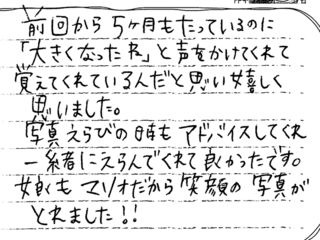 前回から5ヶ月もたっているのに
「大きくなったね」と声をかけてくれて
覚えてくれているんだと思い嬉しく
思いました。
写真えらびの時もアドバイスしてくれ
一緒にえらんでくれて良かったです。
娘も マリオだから笑顔の写真が
とれました!!